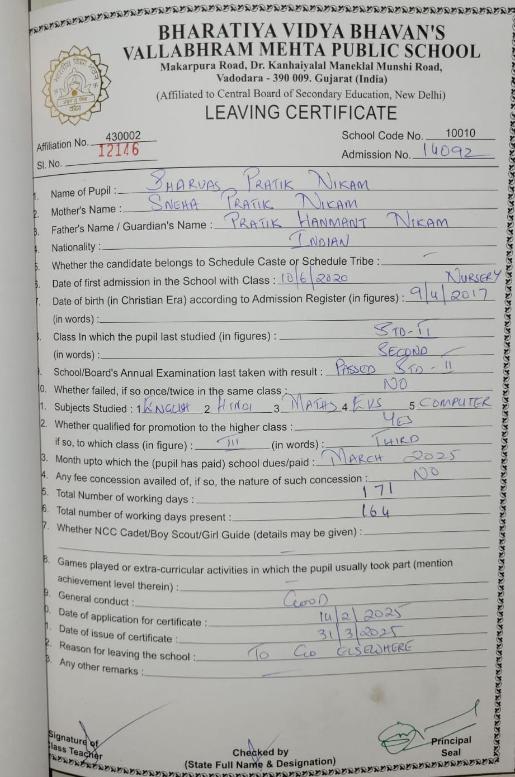 BHARATIYA VIDYA BHAVAN'S
VALLABHRAM MEHTA PUBLIC SCHOOL
Makarpura Road, Dr. Kanhaiyalal Maneklal Munshi Road,
Vadodara - 390 009. Gujarat (India)
(Affiliated to Central Board of Secondary Education, New Delhi)
LEAVING CERTIFICATE
Affiliation No. 430002 School Code No. 10010
Sl. No. 12146 Admission No. 14092
1. Name of Pupil : SHARVAS PRATIK NIKAM
2. Mother's Name : SNEHA PRATIK NIKAM
3. Father's Name / Guardian's Name : PRATIK HANMANT NIKAM
4. Nationality : INDIAN
5. Whether the candidate belongs to Schedule Caste or Schedule Tribe : –
6. Date of first admission in the School with Class : 10/6/2020 NURSERY
7. Date of birth (in Christian Era) according to Admission Register (in figures) : 9/4/2017
(in words) :
8. Class In which the pupil last studied (in figures) : STD-II
(in words) : SECOND
9. School/Board's Annual Examination last taken with result : PASSED STD-II
0. Whether failed, if so once/twice in the same class : NO
1. Subjects Studied : 1 ENGLISH 2 HINDI 3 MATHS 4 EVS 5 COMPUTER
2. Whether qualified for promotion to the higher class : YES
if so, to which class (in figure) : III (in words) : THIRD
3. Month upto which the (pupil has paid) school dues/paid : MARCH 2025
4. Any fee concession availed of, if so, the nature of such concession : NO
5. Total Number of working days : 171
6. Total number of working days present : 164
7. Whether NCC Cadet/Boy Scout/Girl Guide (details may be given) :
–
8. Games played or extra-curricular activities in which the pupil usually took part (mention
achievement level therein) : –
9. General conduct : GOOD
0. Date of application for certificate : 14/2/2025
1. Date of issue of certificate : 31/3/2025
2. Reason for leaving the school : TO GO ELSEWHERE
3. Any other remarks : –
Signature of
Class Teacher
Checked by
(State Full Name & Designation)
Principal
Seal